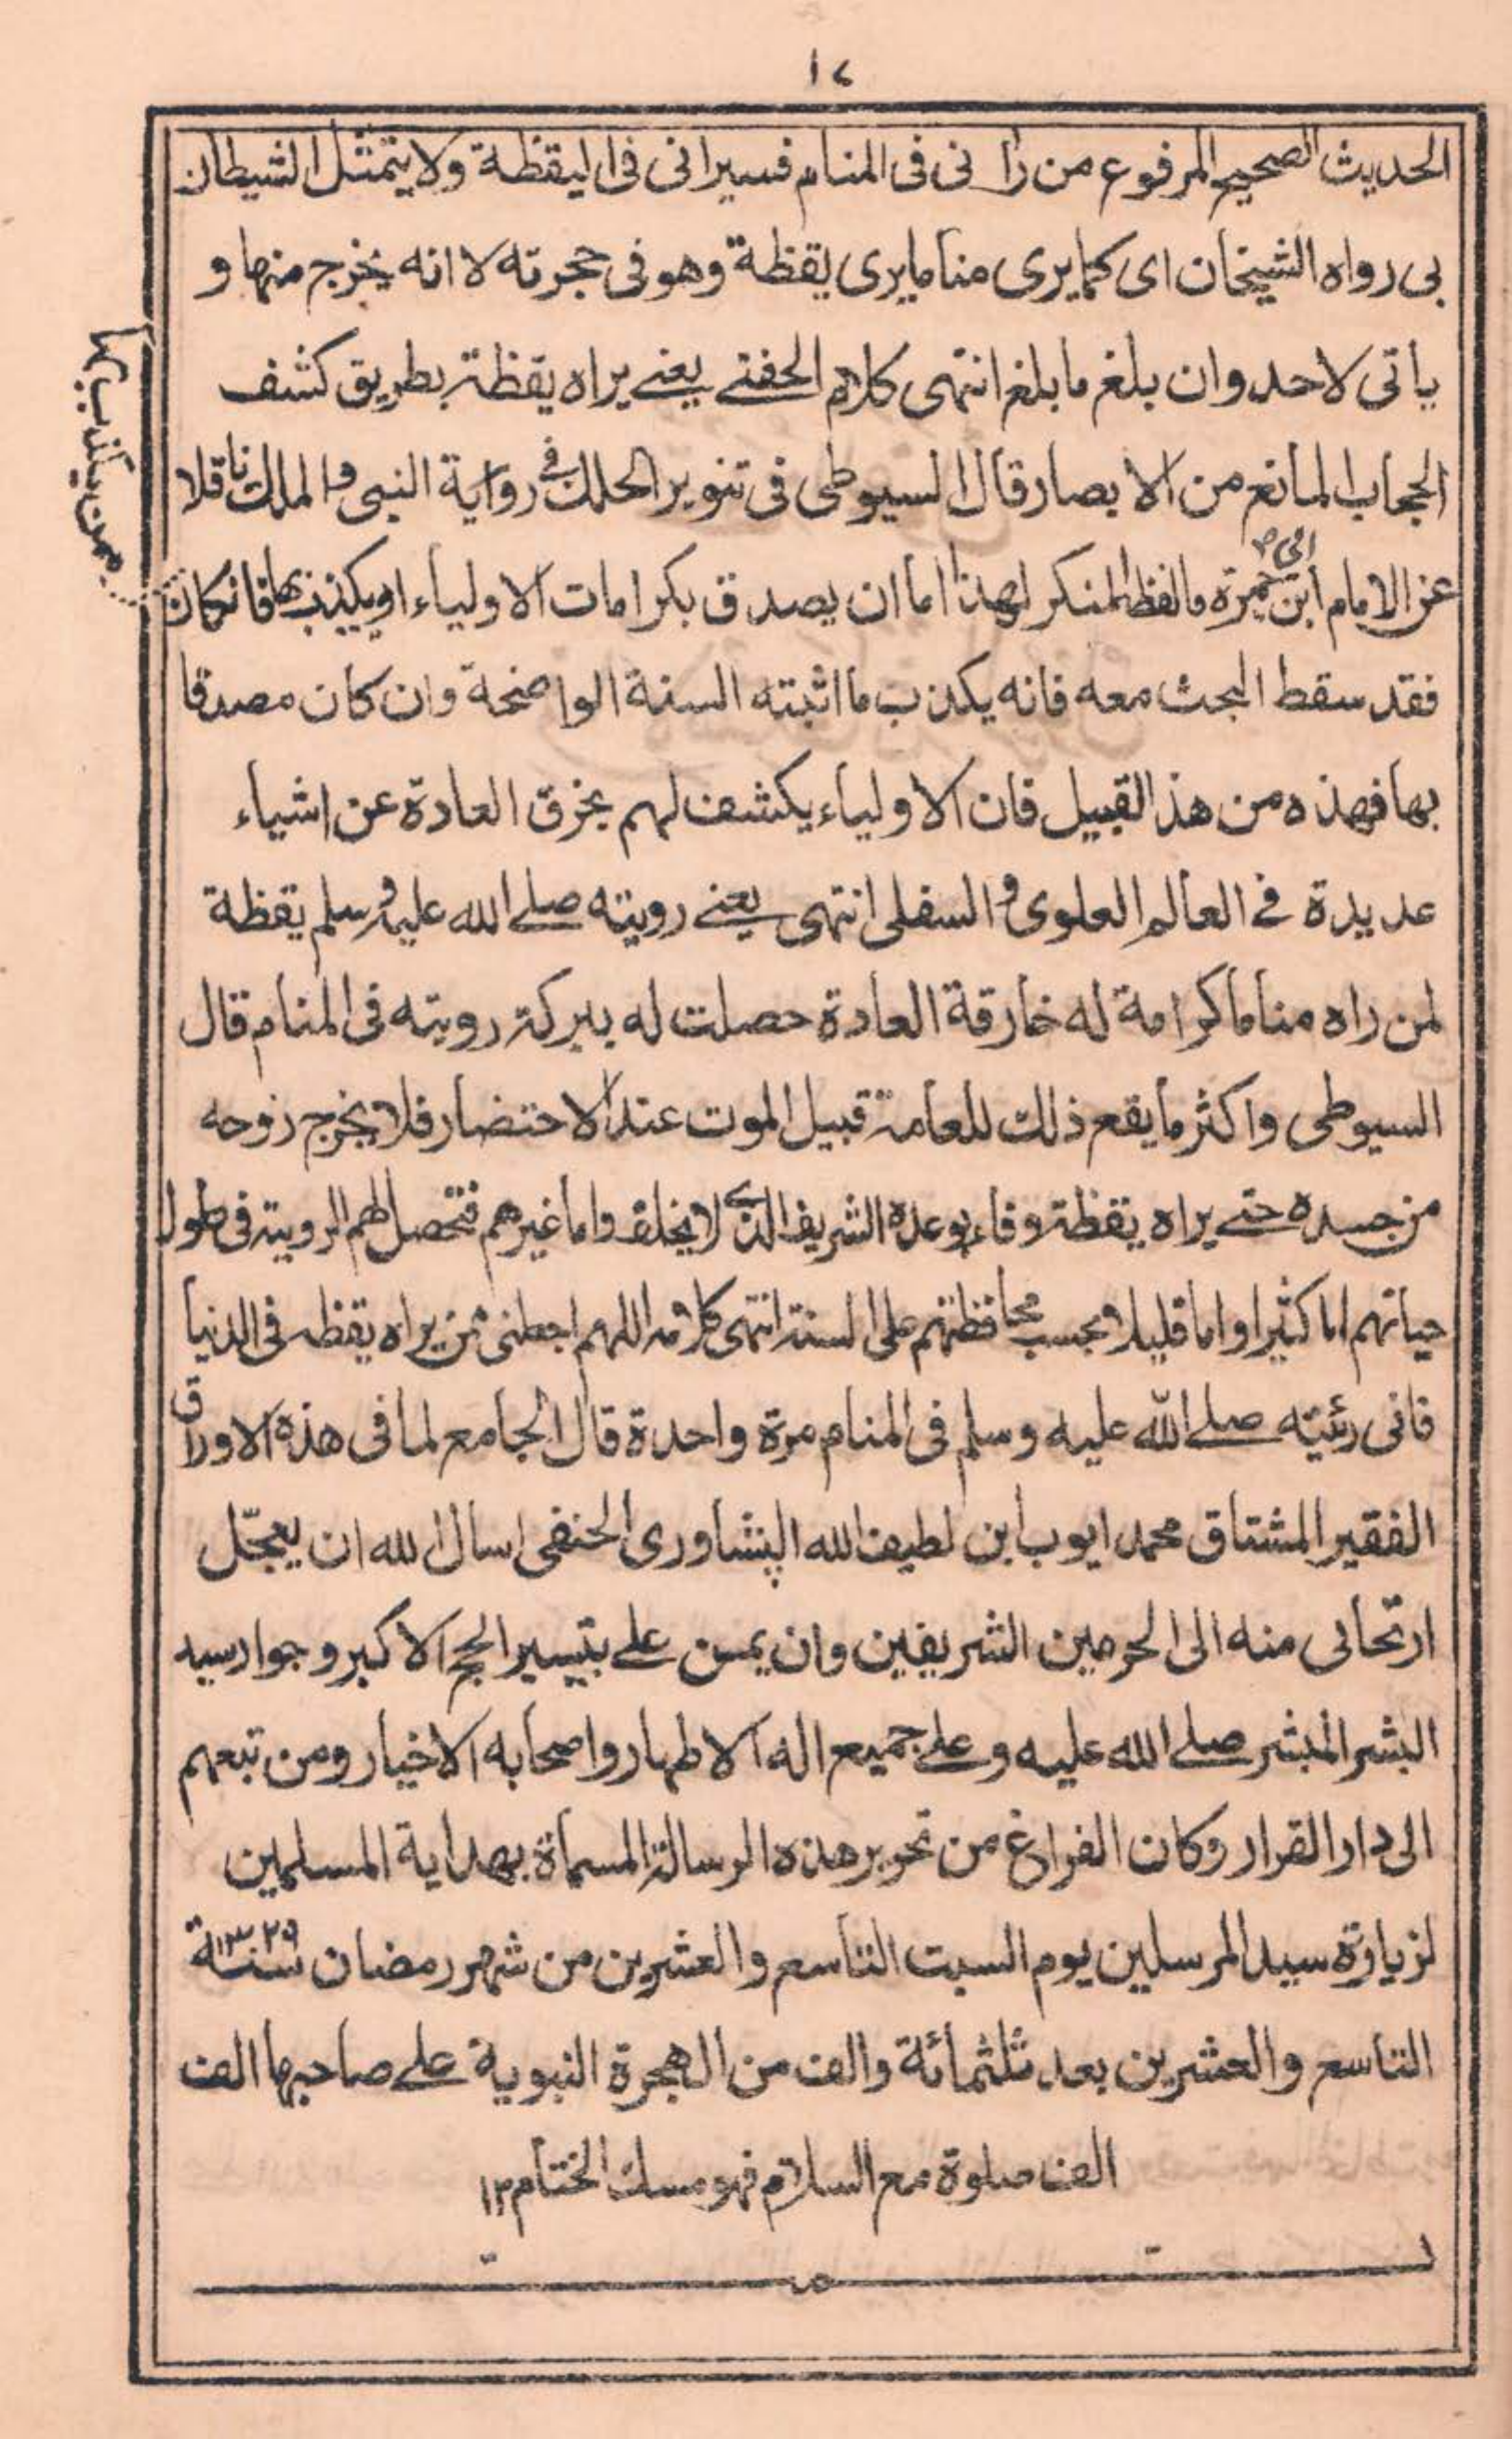 ١٤
الحديث الصحيح المرفوع من رأنى فى المنام فسيرانى فى اليقظة ولا يتمثل الشيطان
بى رواه الشيخان اى كما يرى مناما يرى يقظة وهو فى حجرته لا انه يخرج منها و
يأتى لاحد وان بلغ ما بلغ انتهى كلام الحفنے يعنے يراه يقظة بطريق كشف
الحجاب المانع من الابصار قال السيوطى فى تنوير الحلك فے رواية النبى والملك ناقلا
عن الامام ابن ابى جمرة ما لفظه المنكر لهذا اما ان يصدق بكرامات الاولياء او يكذب بها فانكان
ممن يكذب بها
فقد سقط البحث معه فانه يكذب ما اثبته السنة الواضحة وان كان مصدقا
بها فهذه من هذ القبيل فان الاولياء يكشف لهم بخرق العادة عن اشياء
عديدة فے العالم العلوى والسفلى انتهى يعنے رويته صلے الله عليه وسلم يقظة
لمن راه مناما كرامة له خارقة العادة حصلت له ببركة رويته فى المنام قال
السيوطى واكثر ما يقع ذلك للعامة قبيل الموت عند الاحتضار فلا يخرج روحه
من جسده حتے يراه يقظة وفاء بوعده الشريف الذے لا يخلف واما غيرهم فتحصل لهم الروية فى طول
حياتهم اما كثيرا واما قليلا بحسب محافظتهم على السنة انتهى كلامه اللهم اجعلنى ممن يراه يقظه فى الدنيا
فانى رئيته صلے الله عليه وسلم فى المنام مرة واحدة قال الجامع لما فى هذه الاوراق
الفقير المشتاق محمد ايوب ابن لطيف الله الپشاورى الحنفى اسال الله ان يعجّل
ارتحالى منه الى الحرمين الشريفين وان يمن علے بتيسير الحج الاكبر وجوار سيد
البشر المبشر صلے الله عليه وعلے جميع اله الاطهار واصحابه الاخيار ومن تبعهم
الى دار القرار وكان الفراغ من تحرير هذه الرسالة المسماة بهداية المسلمين
لزيارة سيد المرسلين يوم السبت التاسع والعشرين من شهر رمضان سنة ١٣٢٩
التاسع والعشرين بعد ثلثمائة والف من الهجرة النبوية علے صاحبها الف
الف صلوة مع السلام فهو مسك الختام ١٢